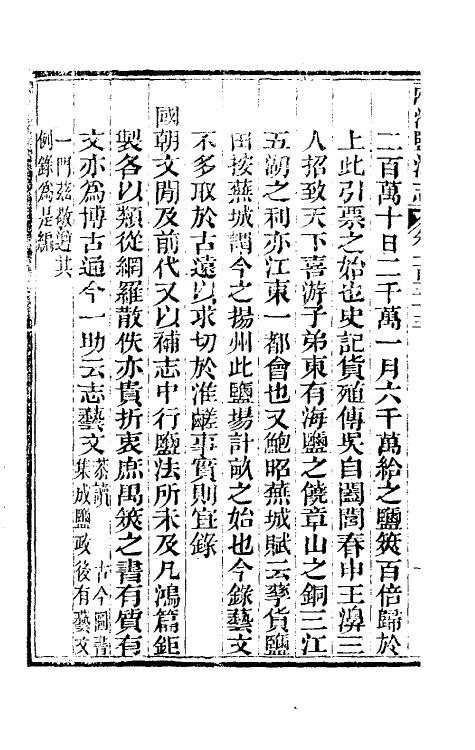 二百萬十日二千萬一月六千萬給之鹽筴百倍歸於
上此引票之始也史記貨殖傳吳自闔閭春申王濞三
人招致天下喜游子弟東有海鹽之饒章山之銅三江
五湖之利亦江東一都會也又鮑昭蕪城賦云孳貨鹽
田按蕪城謂今之揚州此鹽場計畝之始也今錄藝文
不多取於古遠以求切於淮鹺事實則宜錄
國朝文間及前代又以補志中行鹽法所未及凡鴻篇鉅
製各以類從網羅散佚亦貴折衷庶禺筴之書有質有
文亦為博古通今一助云志藝文恭讀 古今圖書
集成鹽政後有藝文
一門茲敬遵其
例錄為是編